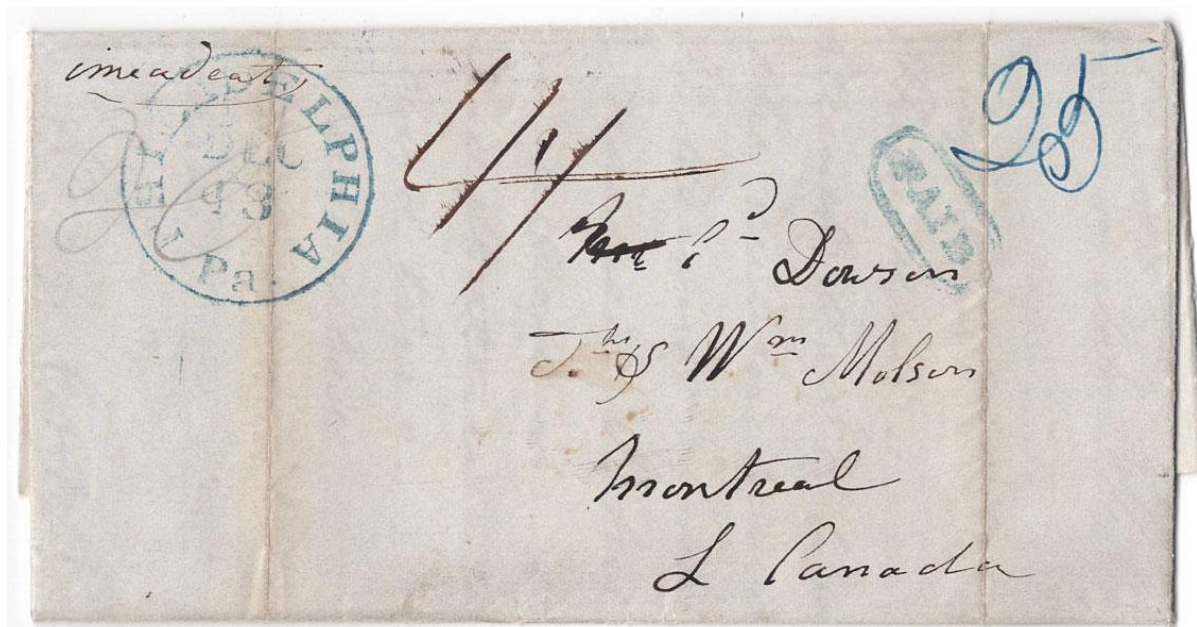 imeadeat
PHILADELPHIA
DEC
18
Pa.
4/1
PAID
25
Dowson
Ths & Wm Molson
Montreal
L Canada